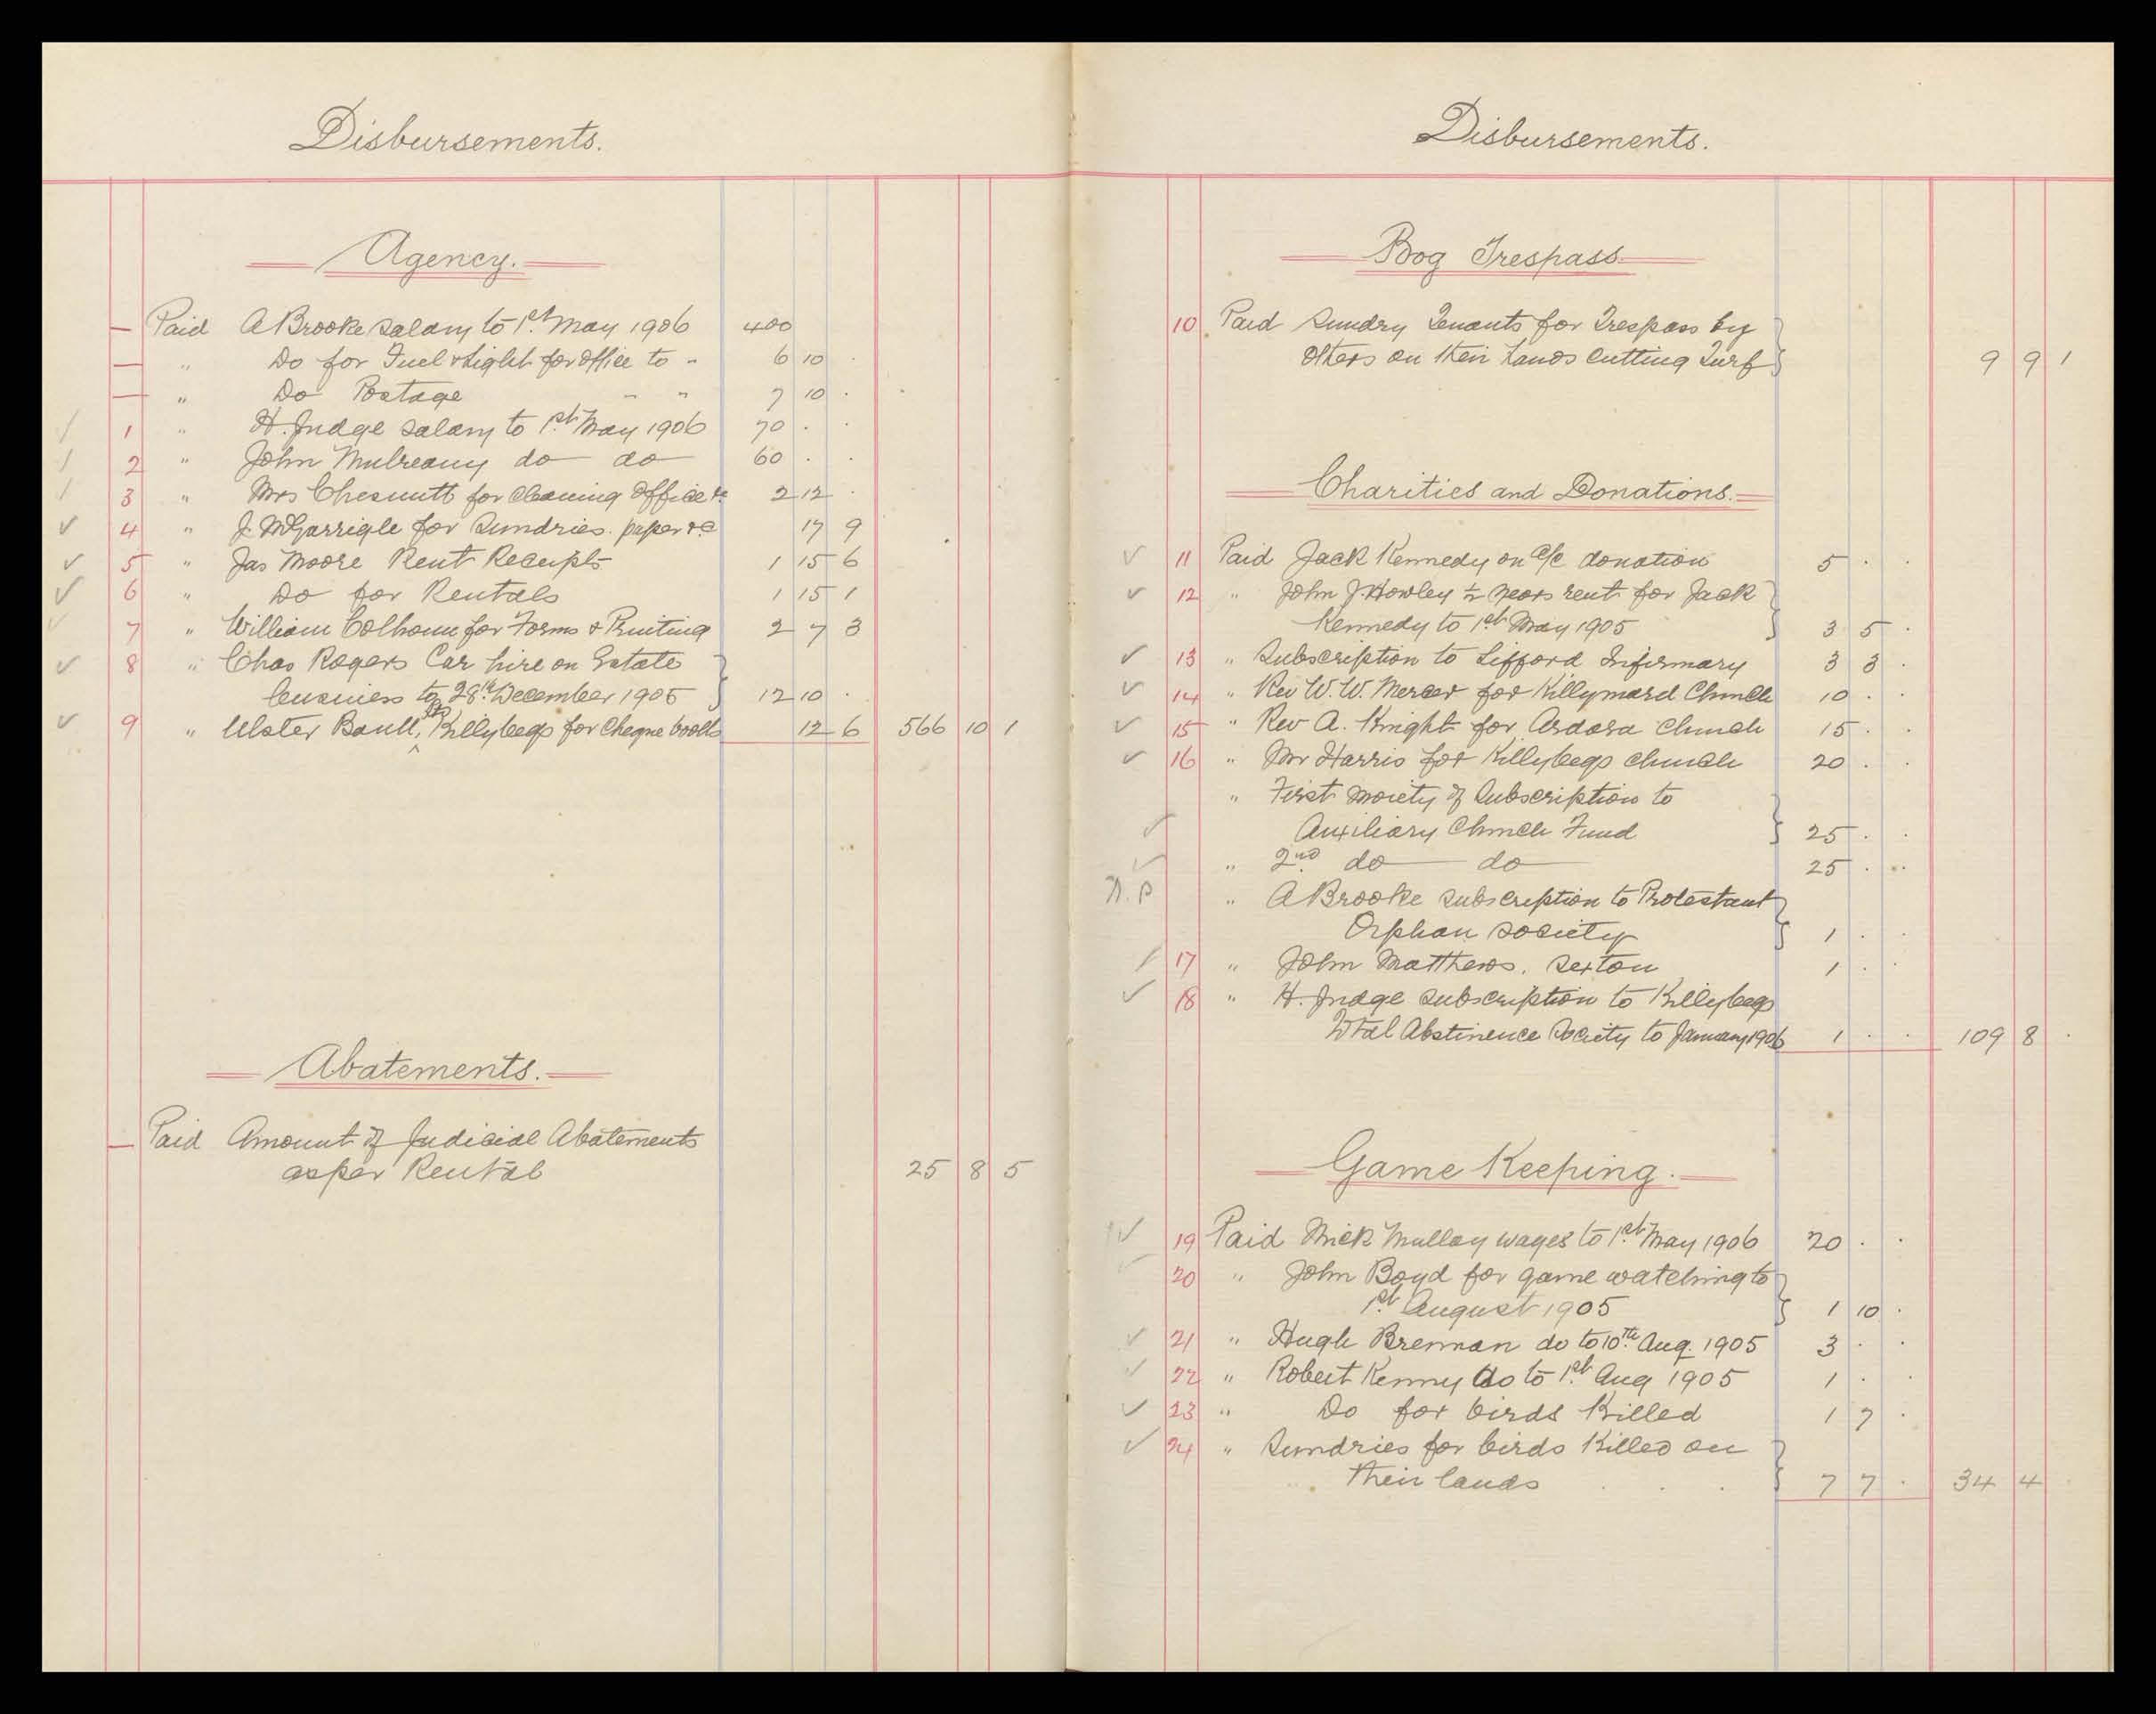 Disbursements.
Agency.
Paid A Brooke salary to 1st May 1906 400
" Do for Fuel & Light for office to " 6 10 .
" Do Postage " " 7 10 .
1 " H. Judge salary to 1st May 1906 70 . .
2 " John Mulreany do do 60 . .
3 " Mrs Chesnutt for cleaning office &c 2 12 .
4 " J. McGarrigle for Sundries. paper &c 17 9
5 " Jas Moore Rent Receipts 1 15 6
6 " Do for Rentals 1 15 1
7 " William Colhoun for Forms & Printing 2 7 3
8 " Chas Rogers Car hire on Estate
business to 28th December 1905 12 10 .
9 " Ulster Bank, Ltd Killybegs for Cheque books 12 6 566 10 1
Abatements.
Paid Amount of Judicial Abatements
as per Rental 25 8 5
Disbursements.
Bog Trespass.
10 Paid Sundry Tenants for Trespass by
others on their Lands cutting Turf 9 9 1
Charities and Donations.
11 Paid Jack Kennedy on a/c donation 5 . .
12 " John J. Howley ½ years rent for Jack
Kennedy to 1st May 1905 3 5 .
13 " Subscription to Lifford Infirmary 3 3 .
14 " Rev W. W. Mercer for Killymard Church 10 . .
15 " Rev A. Knight for Ardara Church 15 . .
16 " Mr Harris for Killybegs Church 20 . .
" First moiety of Subscription to
Auxiliary Church Fund 25 . .
" 2nd do do 25 . .
N.P. " A Brooke subscription to Protestant
Orphan Society 1 . .
17 " John Matthews. Sexton 1 . .
18 " H. Judge subscription to Killybegs
Total Abstinence Society to January 1906 1 . . 109 8 .
Game Keeping.
19 Paid Mick Mulloy wages to 1st May 1906 20 . .
20 " John Boyd for game watching to
1st August 1905 1 10 .
21 " Hugh Brennan do to 10th Aug. 1905 3 . .
22 " Robert Kenny do to 1st Aug 1905 1 . .
23 " Do for birds killed 1 7 .
24 " Sundries for birds killed on
their lands 7 7 . 34 4 .